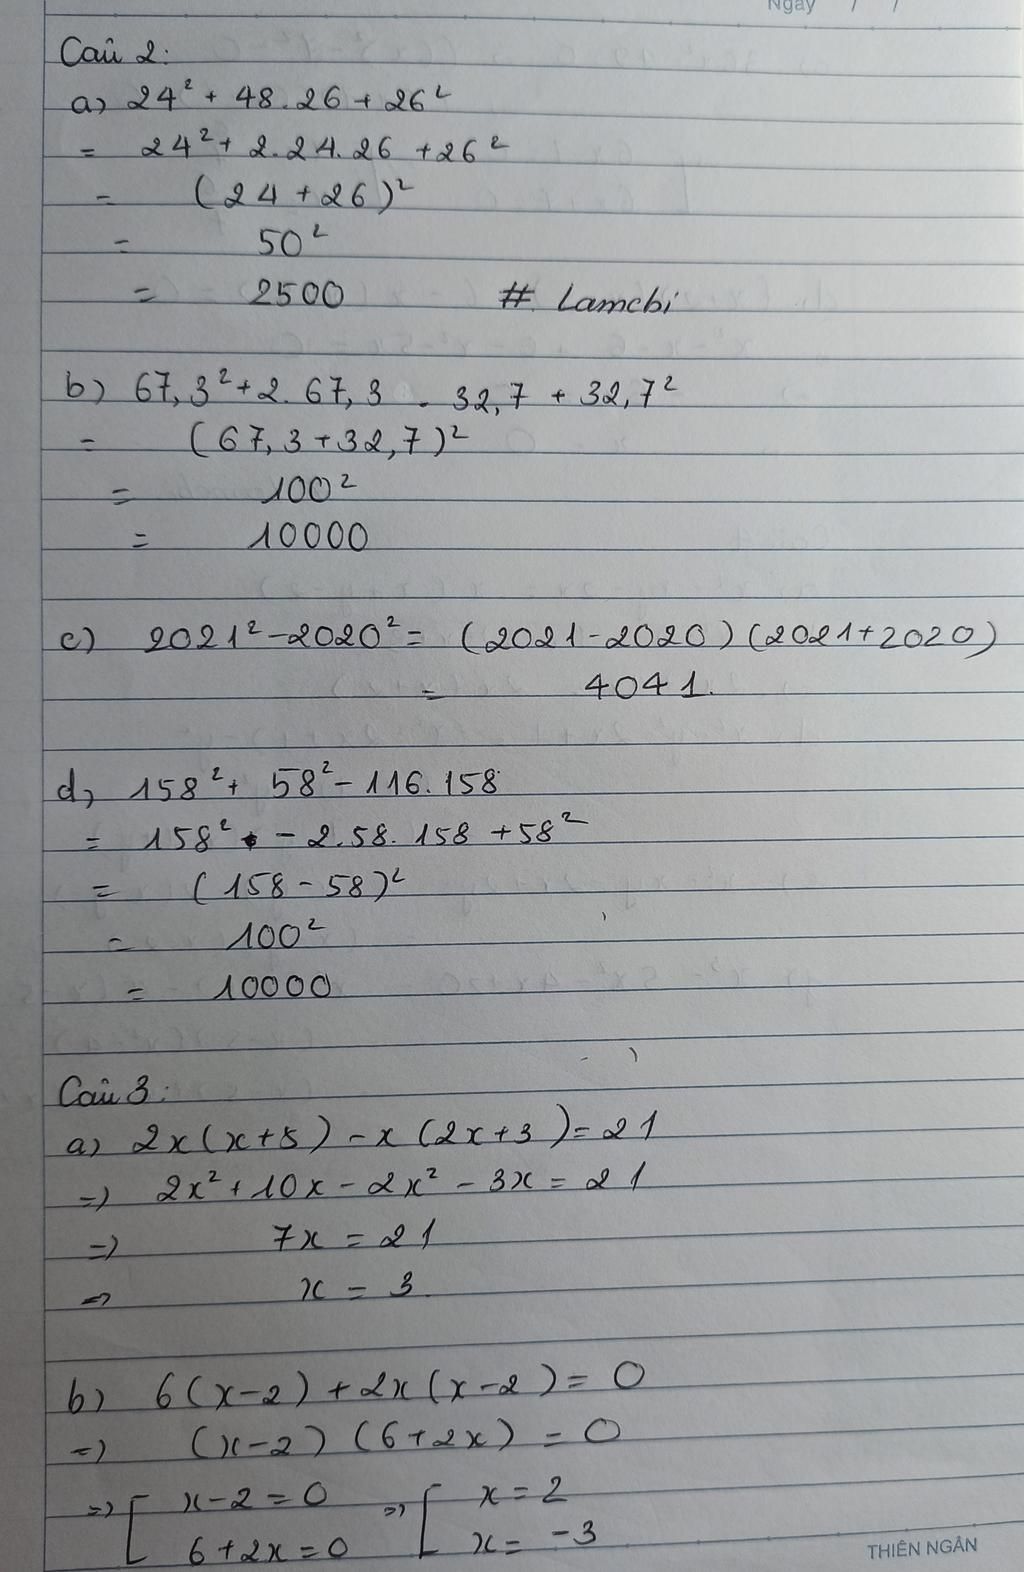 Ngày / /
Câu 2:
a) 24² + 48.26 + 26²
= 24² + 2.24.26 + 26²
= (24 + 26)²
= 50²
= 2500 # Lamchi
b) 67,3² + 2. 67,3 . 32,7 + 32,7²
= (67,3 + 32,7)²
= 100²
= 10000
c) 2021² - 2020² = (2021 - 2020) (2021 + 2020)
= 4041.
d) 158² + 58² - 116.158
= 158² - 2.58.158 + 58²
= (158 - 58)²
= 100²
= 10000
Câu 3:
a) 2x(x+5) - x(2x+3) = 21
=> 2x² + 10x - 2x² - 3x = 21
=> 7x = 21
=> x = 3.
b) 6(x-2) + 2x(x-2) = 0
=> (x-2) (6+2x) = 0
=> [ x-2 = 0 => [ x = 2
6+2x = 0 x = -3
THIÊN NGÂN